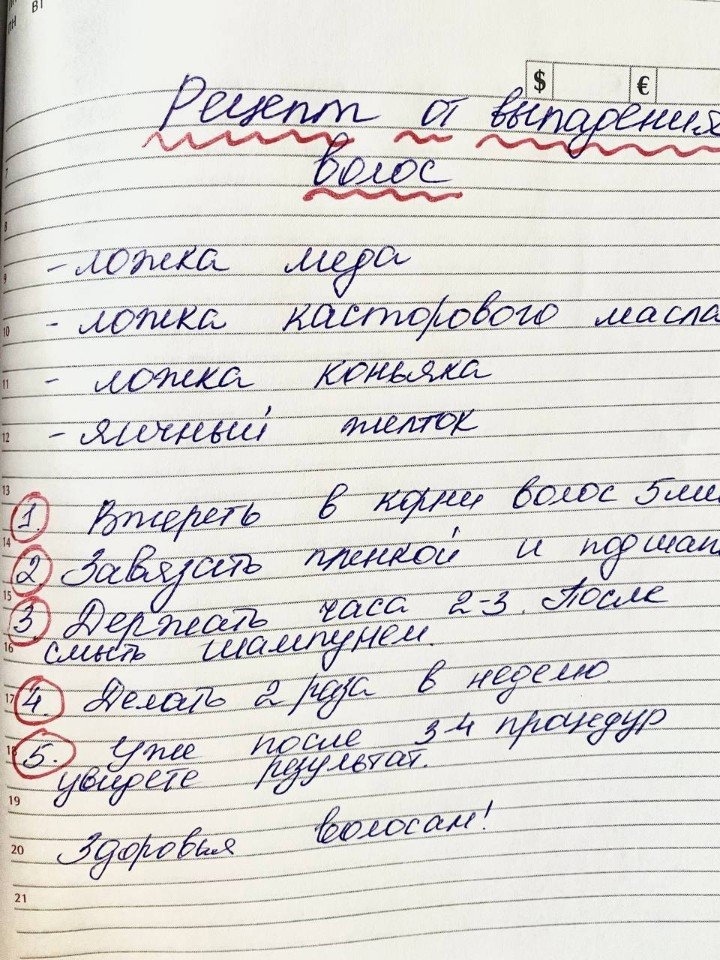 ВТ
$ €
Рецепт от выпадения
волос
- ложка меда
- ложка касторового масла
- ложка коньяка
- яичный желток
1. Втереть в корни волос 5 ми
2 Завязать пленкой и под шап
3. Держать часа 2-3. После
смыть шампунем.
4. Делать 2 раза в неделю
5. Уже после 3-4 процедур
увидете результат.
Здоровья волосам!
7
8
9
10
11
12
13
14
15
16
17
18
19
20
21